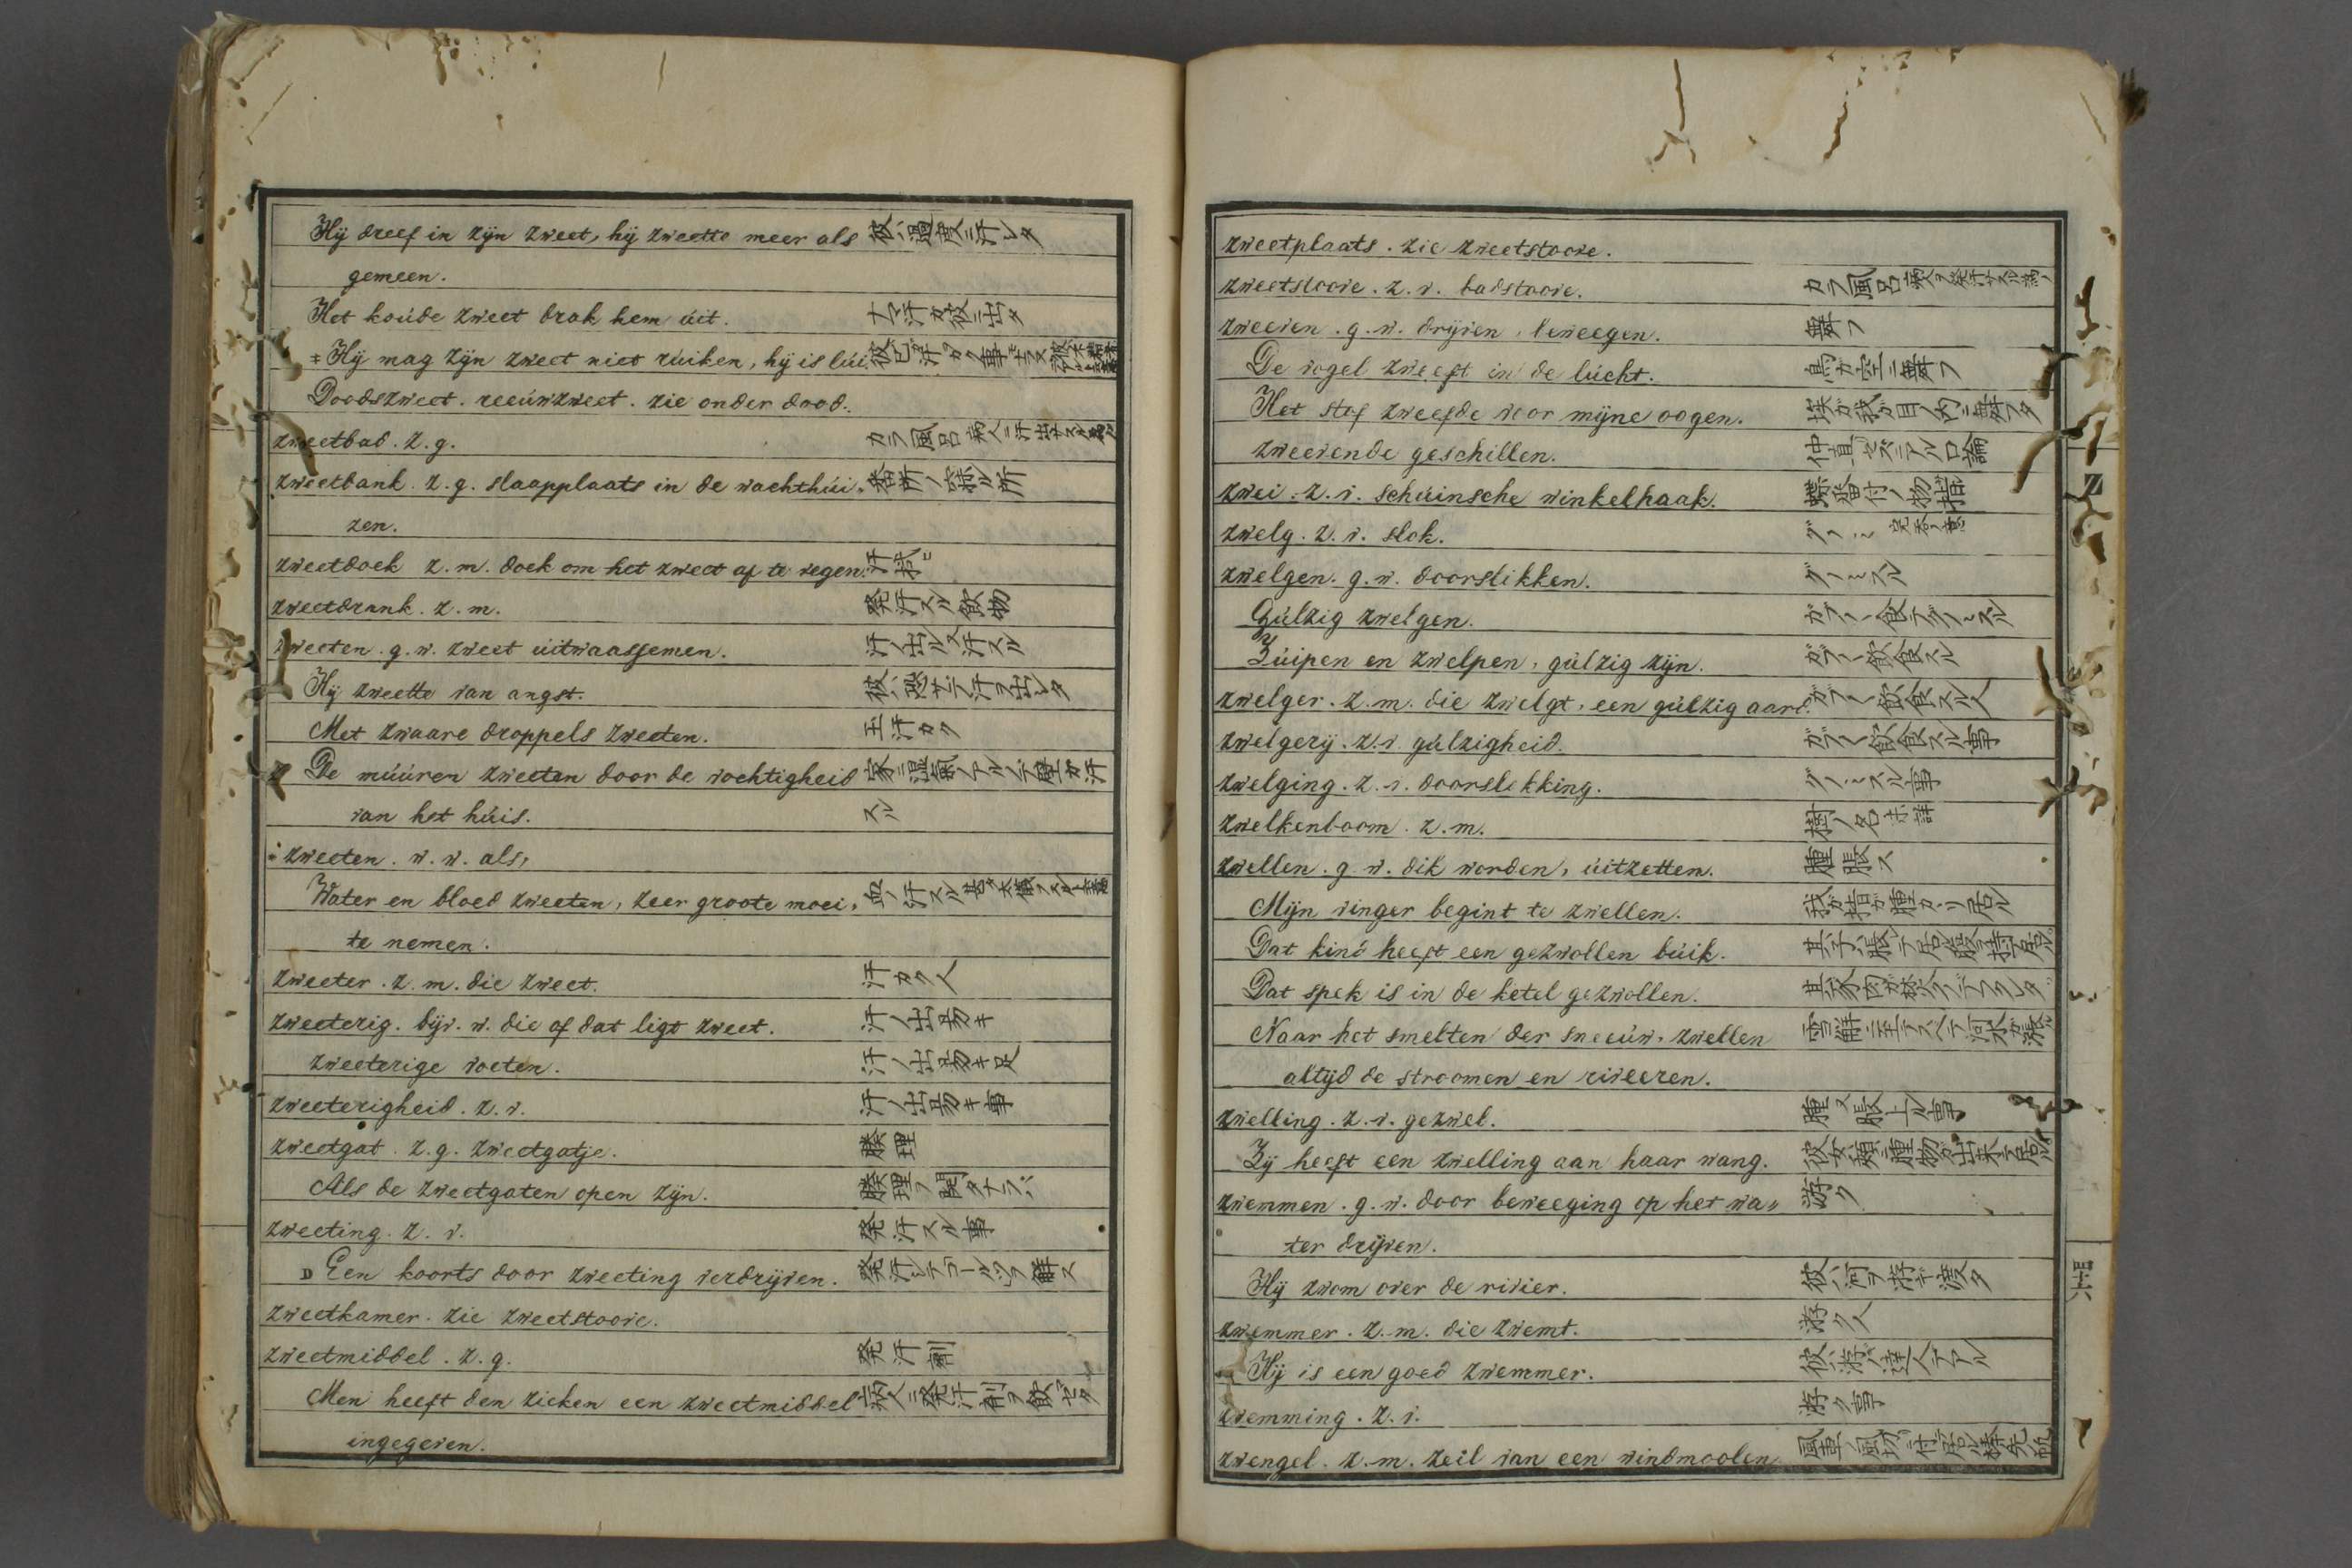 Hij dreef in zijn zweet, hij zweette meer als 彼ハ過度ニ汗シタ
gemeen.
Het koúde zweet brak hem úit. 大汗ガ彼ニ出タ
Hij mag zijn zweet niet rúiken, hij is lúi.
Doodszweet. reeúwzweet. zie onder dood.
zweetbad. z.g. カラ風呂
zweetbank. z.g. slaapplaats in de wachthúi- 番所ノ寐ル所
zen.
zweetdoek z.m. doek om het zweet af te vegen. 汗拭ヒ
zweetdrank. z.m. 発汗スル飲物
zweeten. g.w. zweet úitwaassemen. 汗ノ出ル又汗スル
Hij zweette van angst. 彼ハ恐サニ汗ヲ出シタ
Met zwaare droppels zweeten. 玉汗カク
De múúren zweeten door de vochtigheid 家ニ湿氣ノアルデ壁ガ汗
van het húis. スル
zweeten. w.w. als,
Water en bloed zweeten, zeer groote moei, 血ノ汗スル
te nemen.
zweeter. z.m. die zweet. 汗カク人
zweeterig. bijv. w. die of dat ligt zweet. 汗ノ出易キ
zweeterige voeten. 汗ノ出易キ足
zweeterigheid. z.v. 汗ノ出易キ事
zweetgat. z.g. zweetgatje. 腠理
Als de zweetgaten open zijn. 腠理ノ開タナラバ
zweeting. z.v. 発汗スル事
Een koorts door zweeting verdrijven. 発汗シテコールツヲ解ス
zweetkamer. zie zweetstoove.
zweetmiddel. z.g. 発汗劑
Men heeft den zieken een zweetmiddel 病人ニ発汗劑ヲ飲セタ
ingegeven.
zweetplaats. zie zweetstoove.
zweetstoove. z.v. badstoove. カラ風呂
zweeven. g.w. drijven, beweegen. 舞フ
De vogel zweeft in de lúcht. 鳥ガ空ニ舞フ
Het stof zweefde voor mijne oogen. 埃ガ我ガ目ノ内ニ舞フタ
zweevende geschillen. 仲直セズニアル口論
zwei. z.v. schúinsche winkelhaak. 蝶番付ノ物指
zwelg. z.v. slok.
zwelgen. g.w. doorslikken.
Gúlzig zwelgen.
Zúipen en zwelpen, gúlzig zijn.
zwelger. z.m. die zwelgt, een gúlzig aard.
zwelgerij. z.v. gúlzigheid.
zwelging. z.v. doorslekking.
zwelkenboom. z.m. 樹ノ名 未詳
zwellen. g.w. dik worden, úitzetten. 腫脹ス
Mijn vinger begint te zwellen. 我ガ指ガ腫カヽリ居ル
Dat kind heeft een gezwollen búik. 其子ハ脹テ居ル腹ヲ持テ居ル
Dat spek is in de ketel gezwollen.
Naar het smelten der sneeúw, zwellen 雪解ニ至テスベテ河水ガ漲ル
altijd de stroomen en riveeren.
zwelling. z.v. gezwel. 腫又脹上ル事
Zij heeft een zwelling aan haar wang. 彼女ハ頬ニ腫物ガ出来テ居ル
zwemmen. g.w. door beweeging op het wa- 游ク
ter drijven.
Hij zwom over de rivier. 彼ハ河ヲ游デ渡タ
zwemmer. z.m. die zwemt. 游ク人
Hij is een goed zwemmer. 彼ハ游ノ達人デアル
zwemming. z.v. 游ク事
zwengel. z.m. zeil van een windmoolen
Z